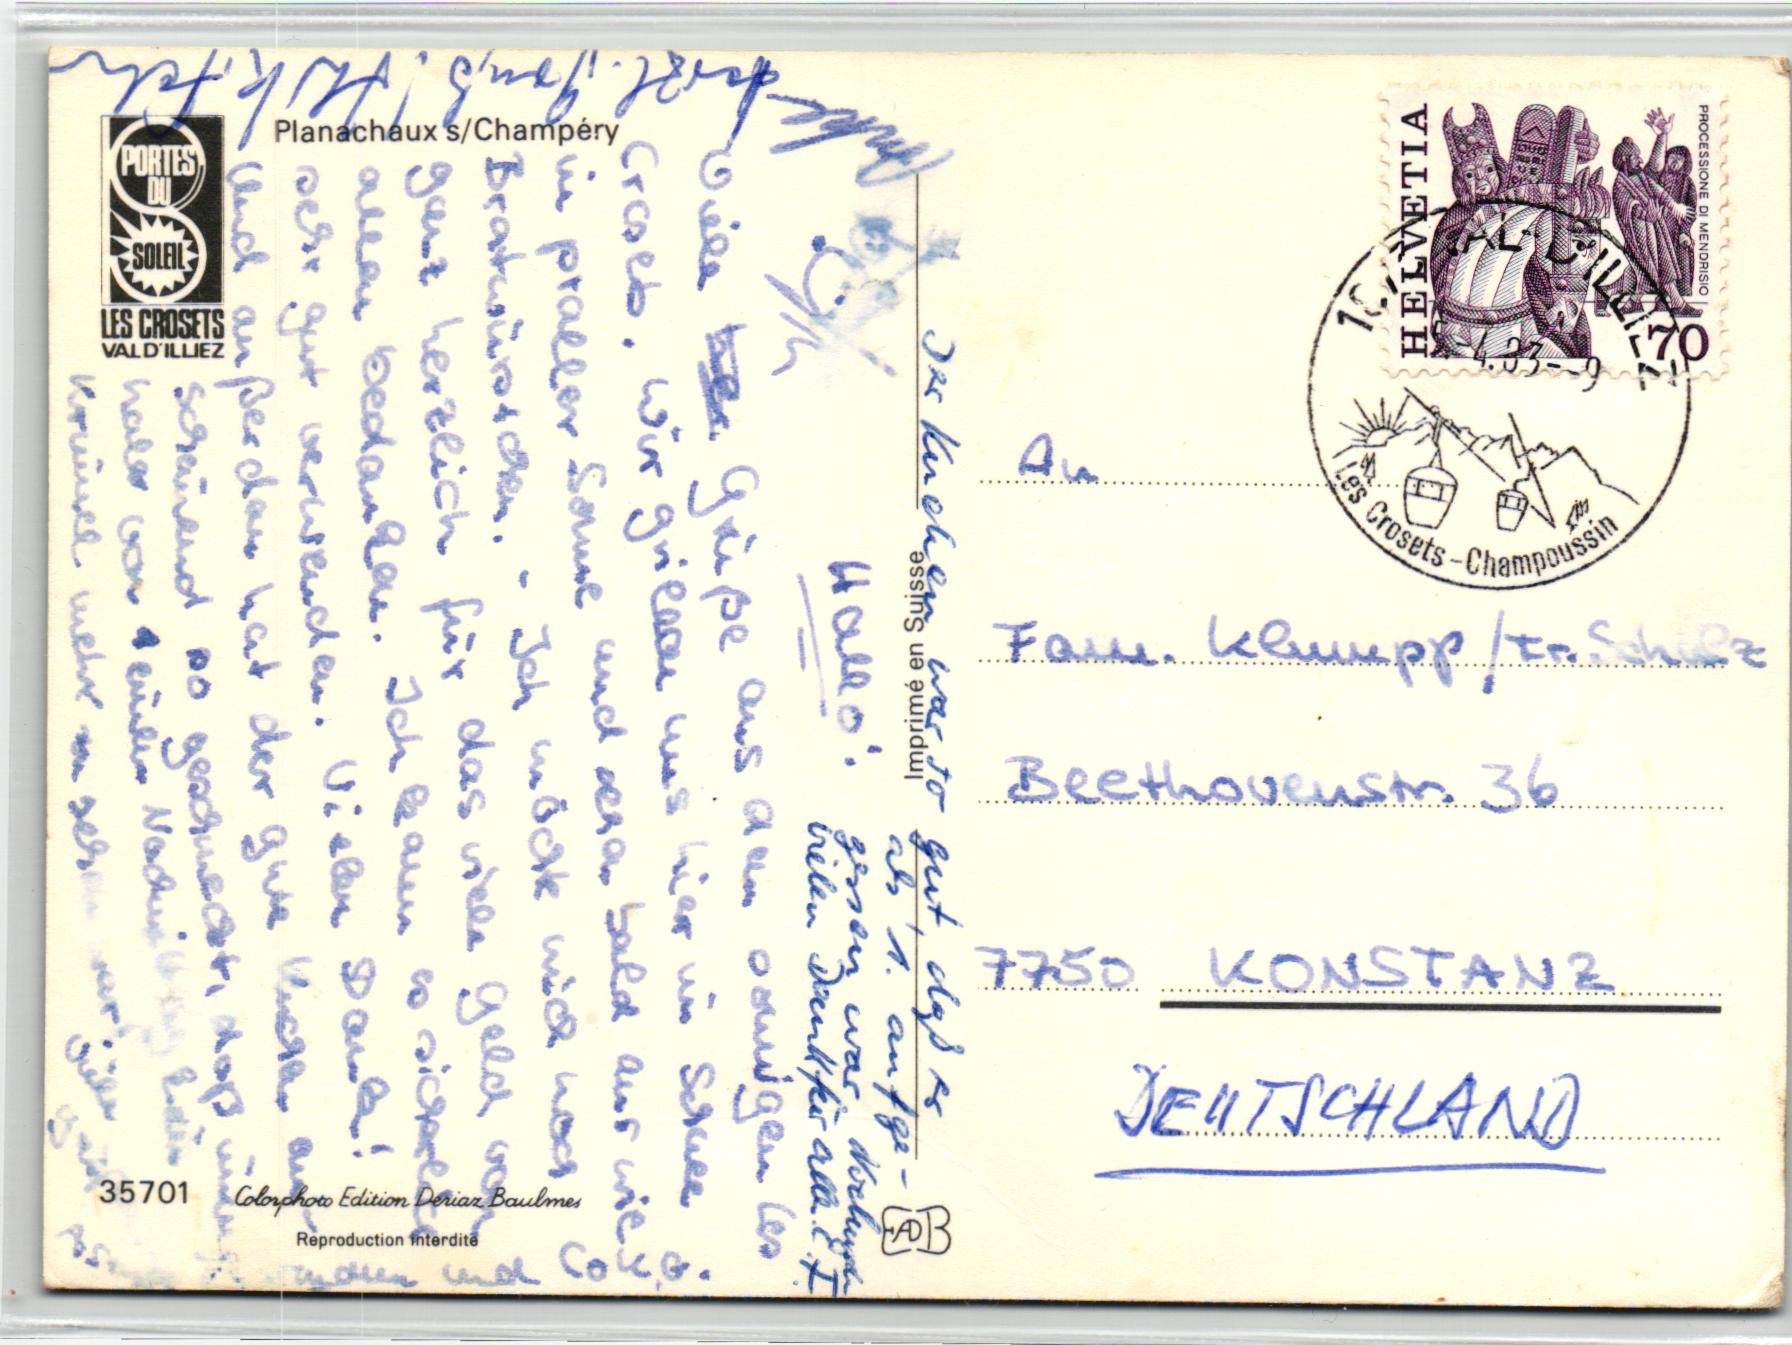 Planachaux s/Champéry
PORTES
DU
SOLEIL
LES CROSETS
VAL D'ILLIEZ
Hallo!
Viele Grüße aus den sonnigen Les
Crosets. Wir grillen uns hier im Schnee
in praller Sonne und sehen bald aus wie
Bratwürstchen. Ich möchte mich noch
ganz herzlich für das viele Geld von
allen bedanken. Ich kann es sicherlich
sehr gut verwenden. Vielen Dank!
Und außerdem hat der gute Kuchen
scheinend so geschmeckt, daß
nach einem Nachmittag
Krümel mehr zu sehen war!
Viele
Der Kuchen war so gut daß er
als 1. aufge-
gessen war.
vielen Dank für alles.
Imprimé en Suisse
35701
Colorphoto Edition Deriaz Baulmes
Reproduction interdite
EDB
HELVETIA
PROCESSIONE DI MENDRISIO
70
VAL-D'ILLIEZ
-4.83--9
Les Crosets - Champoussin
An
Fam. Klumpp/Fr. Schulz
Beethovenstr. 36
7750 KONSTANZ
DEUTSCHLAND